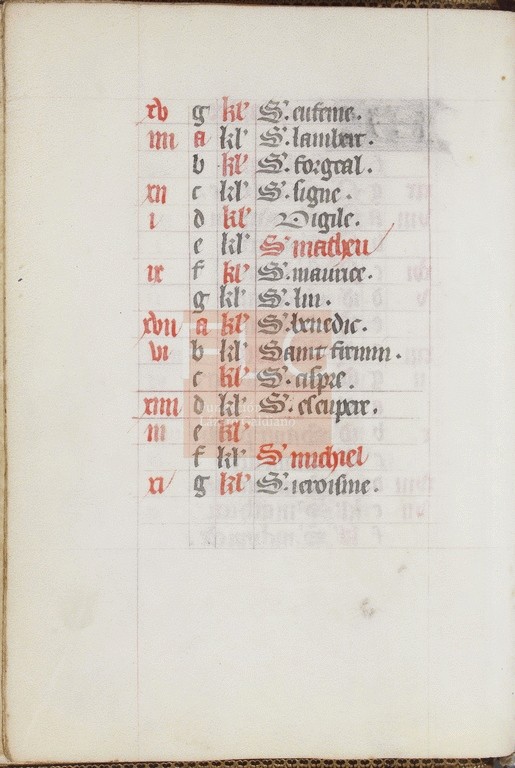 xv g kl' S'. eufeme.
iiii a kl' S'. lambert.
b kl' S'. forgeal.
xii c kl' S'. signe.
i d kl' Vigile.
e kl' S' matheu
ix f kl' S'. maurice.
g kl' S'. lin.
xvii a kl' S'. benedic.
vi b kl' Saint firmin.
c kl' S'. cipre.
xiiii d kl' S'. elcupere.
iii e kl'
f kl' S' michiel
xi g kl' S'. ieroisme.